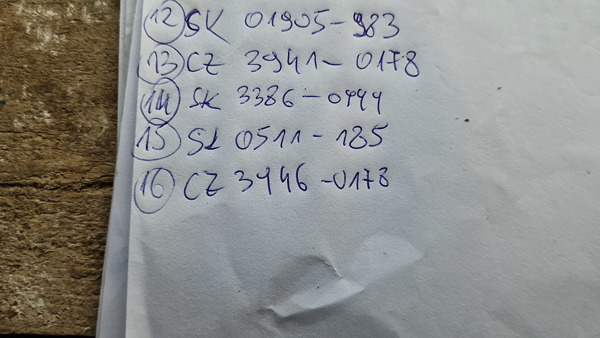 12 SK 01905-983
13 CZ 3941-0178
14 SK 3386-0444
15 SK 0511-185
16 CZ 3446-0178